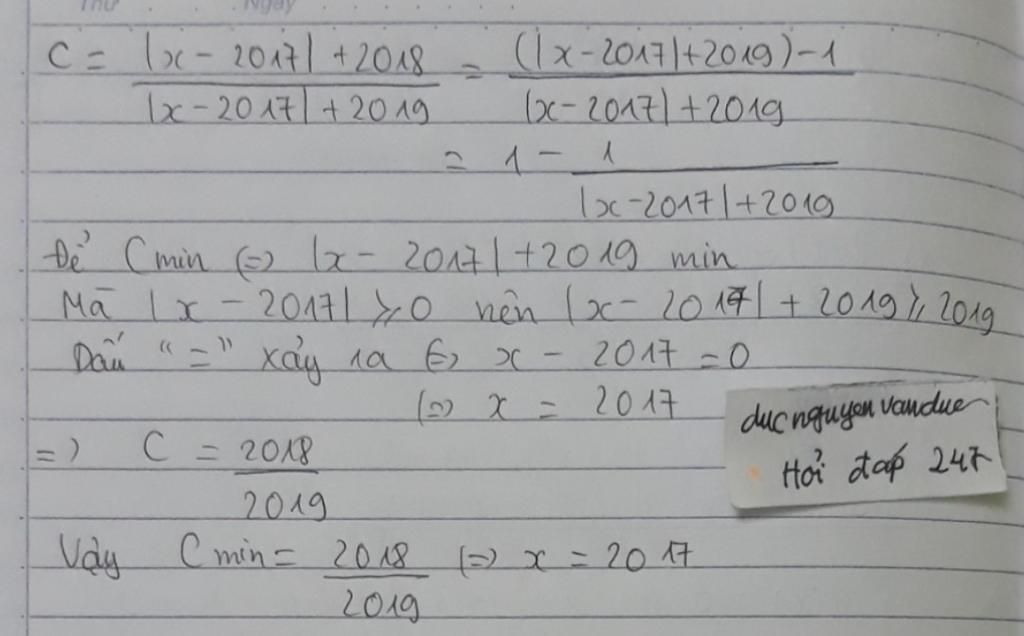 Thứ Ngày
C = |x - 2017| + 2018 / |x - 2017| + 2019 = (|x - 2017| + 2019) - 1 / |x - 2017| + 2019
= 1 - 1 / |x - 2017| + 2019
Để C min (=) |x - 2017| + 2019 min
Mà |x - 2017| ⩾ 0 nên |x - 2017| + 2019 ⩾ 2019
Dấu “=” xảy ra (=) x - 2017 = 0
(=) x = 2017
=) C = 2018 / 2019
Vậy C min = 2018 / 2019 (=) x = 2017
ducnguyenvanduc
Hỏi đáp 247